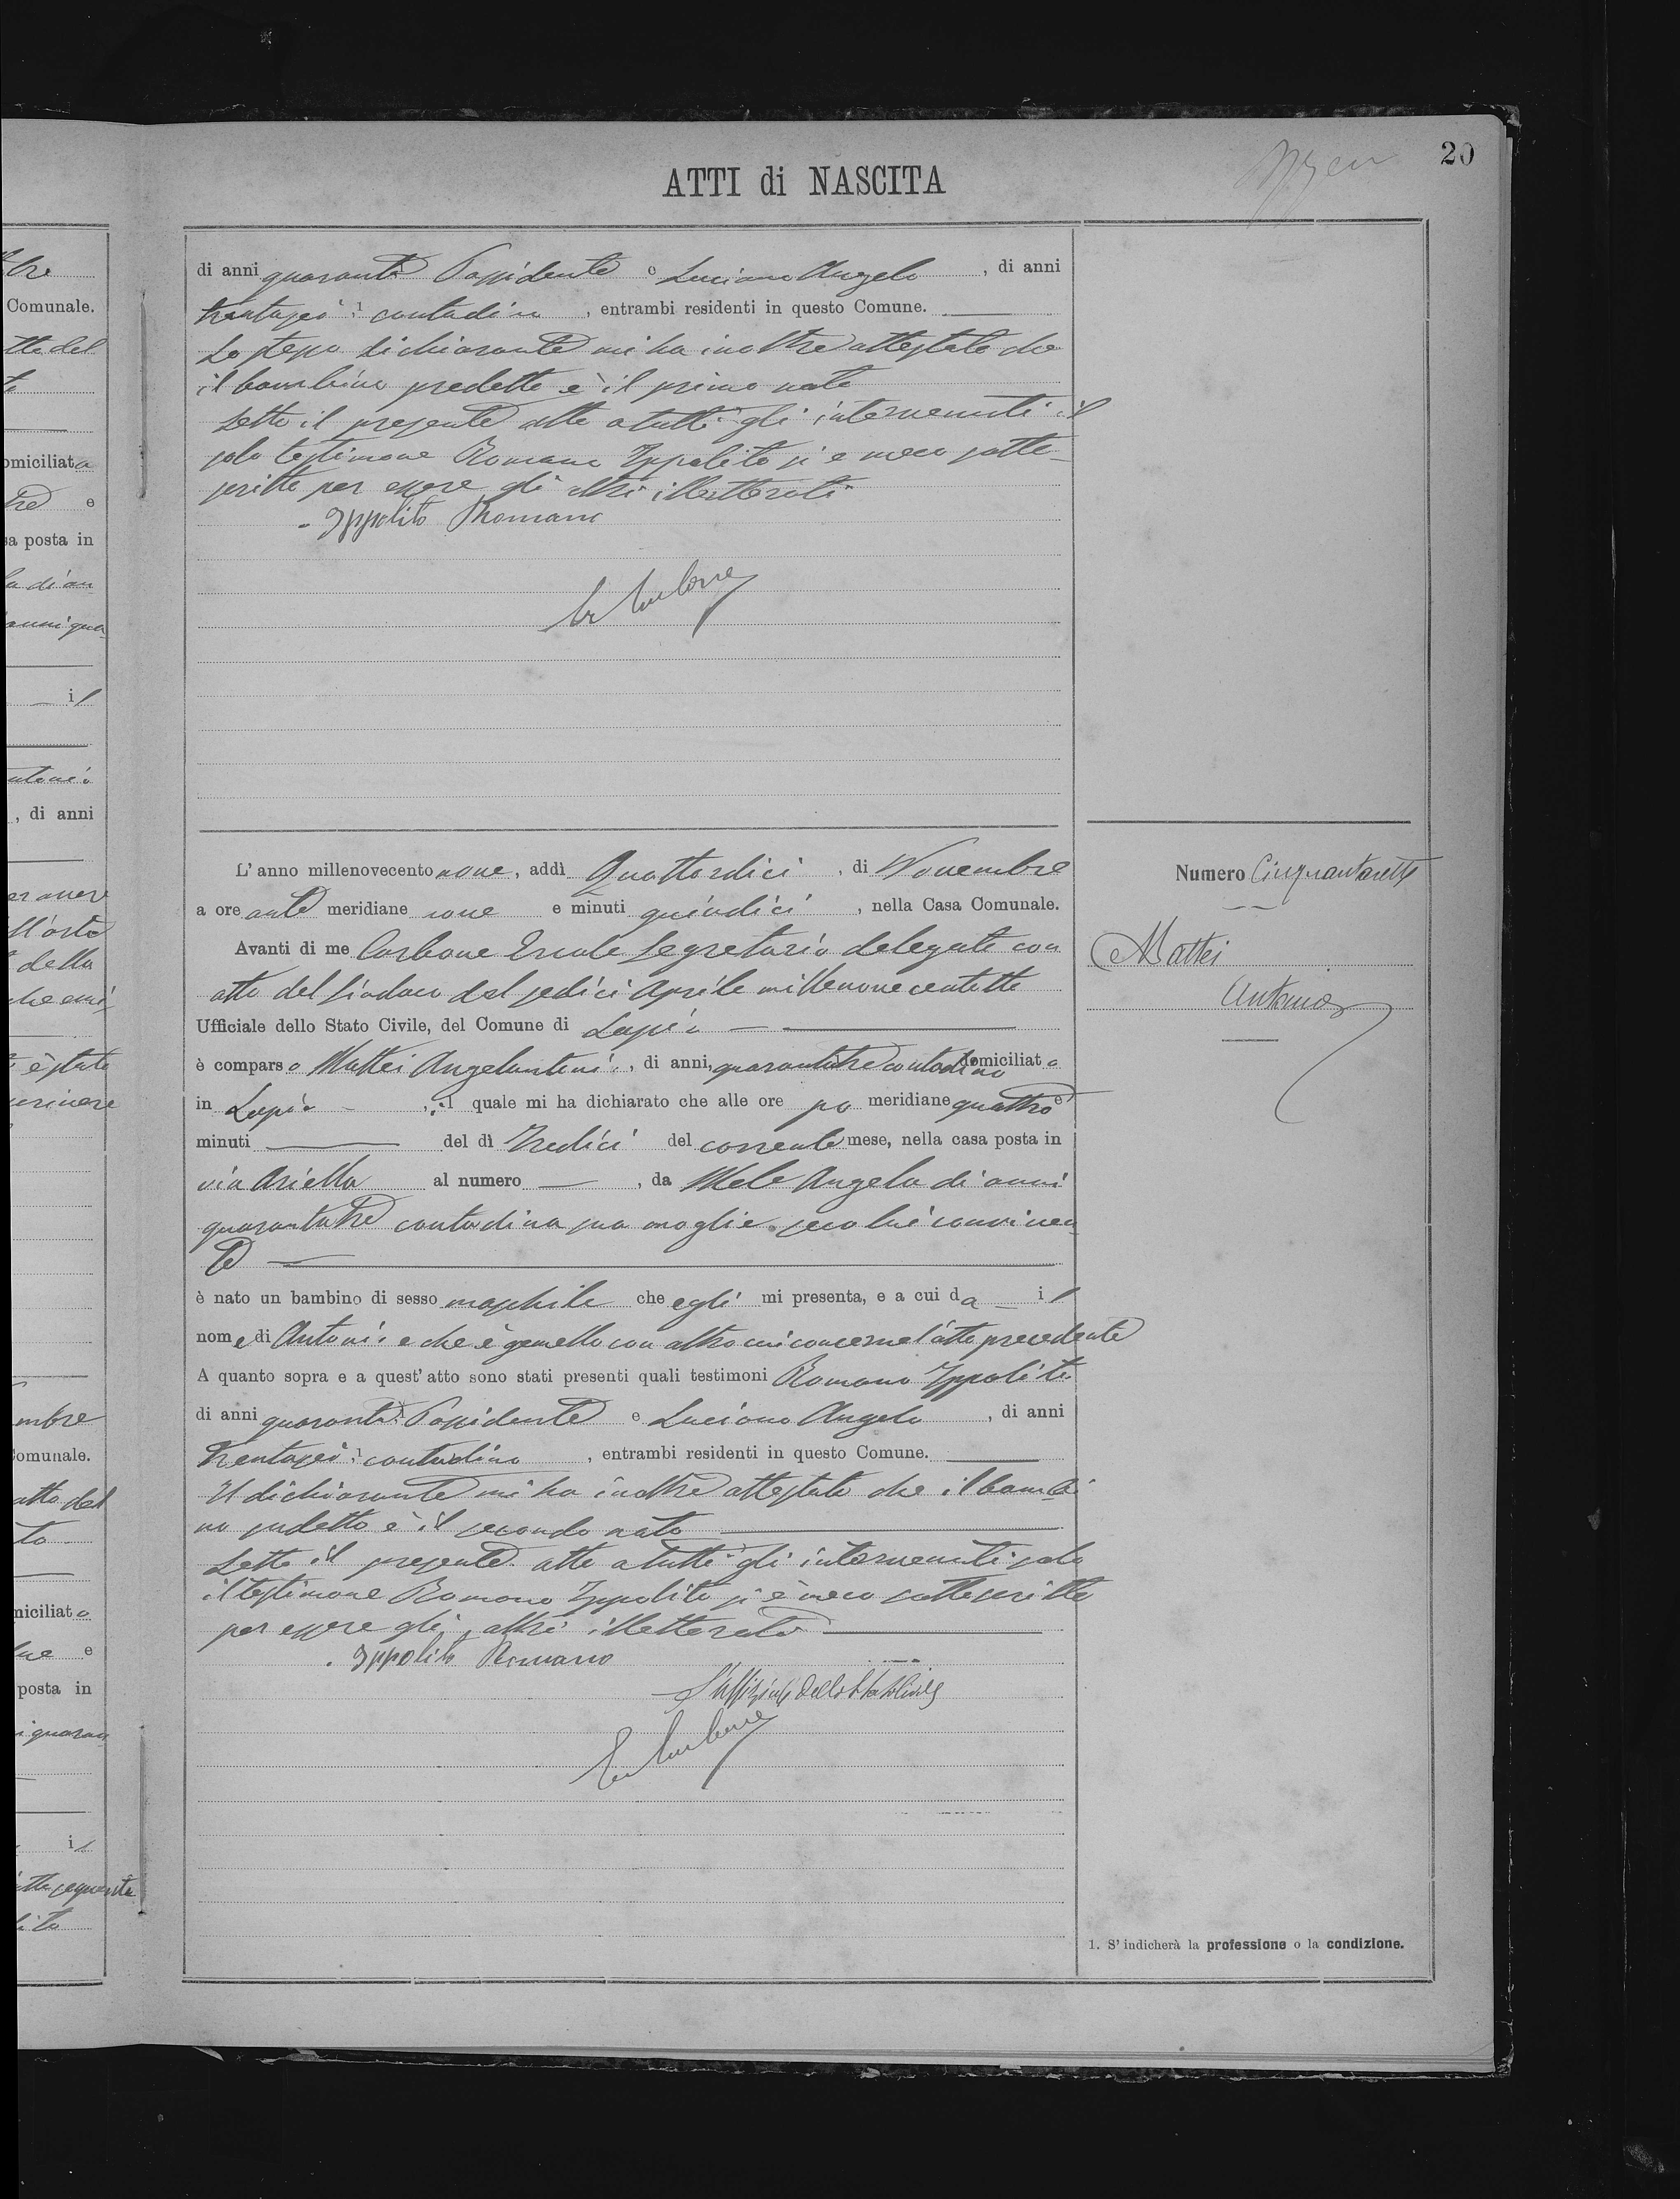 20
ATTI di NASCITA
bre
Comunale.
tto del
to
omiciliata
tre e
sa posta in
la di an
anni qua
il
ntonio
, di anni
della
è stato
mbre
Comunale.
atto del
to
miciliato
e
posta in
i quaran
il
atto seguente
lito
di anni quaranta Possidente e Luciano Angelo, di anni
trentasei contadino, entrambi residenti in questo Comune.
Lo stesso dichiarante mi ha inoltre attestato che
il bambino predetto è il primo nato
Letto il presente atto a tutti gli intervenuti il
solo testimone Romano Ippolito si è meco sotto-
scritto per essere gli altri illetterati
Ippolito Romano
L'anno millenovecentonove, addì Quattordici, di Novembre
a ore ante meridiane nove e minuti quindici, nella Casa Comunale.
Avanti di me Carbone Ercole Segretario delegato con
atto del Sindaco del sedici Aprile millenovecentotto
Ufficiale dello Stato Civile, del Comune di Lapio
è comparso Mattei Angelantonio, di anni, quarantatre contadino domiciliato
in Lapio, il quale mi ha dichiarato che alle ore po meridiane quattro e
minuti del dì Tredici del corrente mese, nella casa posta in
via Ariella al numero, da Mele Angela di anni
quarantatre contadina sua moglie seco lui conviven
te
è nato un bambino di sesso maschile che egli mi presenta, e a cui da il
nome di Antonio e che è gemello con altro cui concerne l'atto precedente
A quanto sopra e a quest'atto sono stati presenti quali testimoni Romano Ippolito
di anni quaranta Possidente e Luciano Angelo, di anni
trentasei contadino, entrambi residenti in questo Comune.
Il dichiarante mi ha inoltre attestato che il bambi
no sudetto è il secondo nato
Letto il presente atto a tutti gli intervenuti solo
il testimone Romano Ippolito si è meco sottoscritto
per essere gli altri illetterato
Ippolito Romano
L'uffiziale dello Stato Civile
Er Carbone
Numero Cinquantasette
Mattei
Antonio
1. S'indicherà la professione o la condizione.